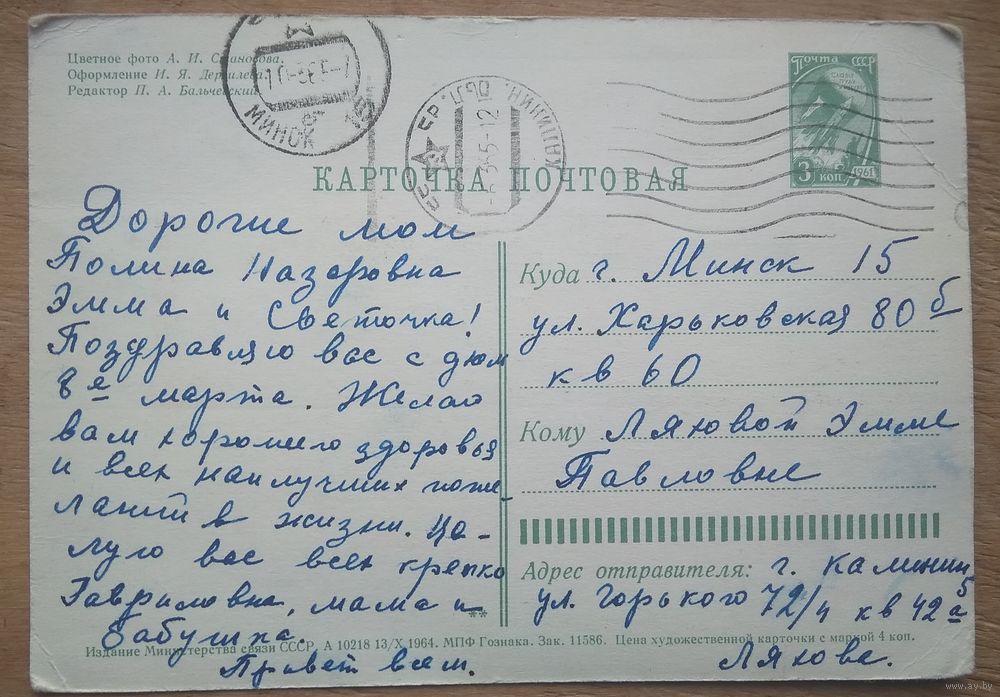 Цветное фото А. И.
Оформление И. Я.
Редактор П. А. Бальчевский
МИНСК
КАЛИНИН,
5-12
Почта СССР
3 коп. 1961
КАРТОЧКА ПОЧТОВАЯ
Дорогие мои
Полина Назаровна
Эмма и Светочка!
Поздравляю вас с днем
8е марта. Желаю
вам хорошего здоровья
и всех наилучших поже-
ланий в жизни. Це-
лую вас всех крепко
Гавриловна, мама и
бабушка.
Привет всем.
Куда г. Минск 15
ул. Харьковская 80 б
кв 60
Кому Ляховой Эмме
Павловне
Адрес отправителя: г. Калинин 5
ул. Горького 72/4 кв 42а
**
Издание Министерства связи СССР. А 10218 13/X 1964. МПФ Гознака. Зак. 11586. Цена художественной карточки с маркой 4 коп.
Ляхова.
www.ay.by